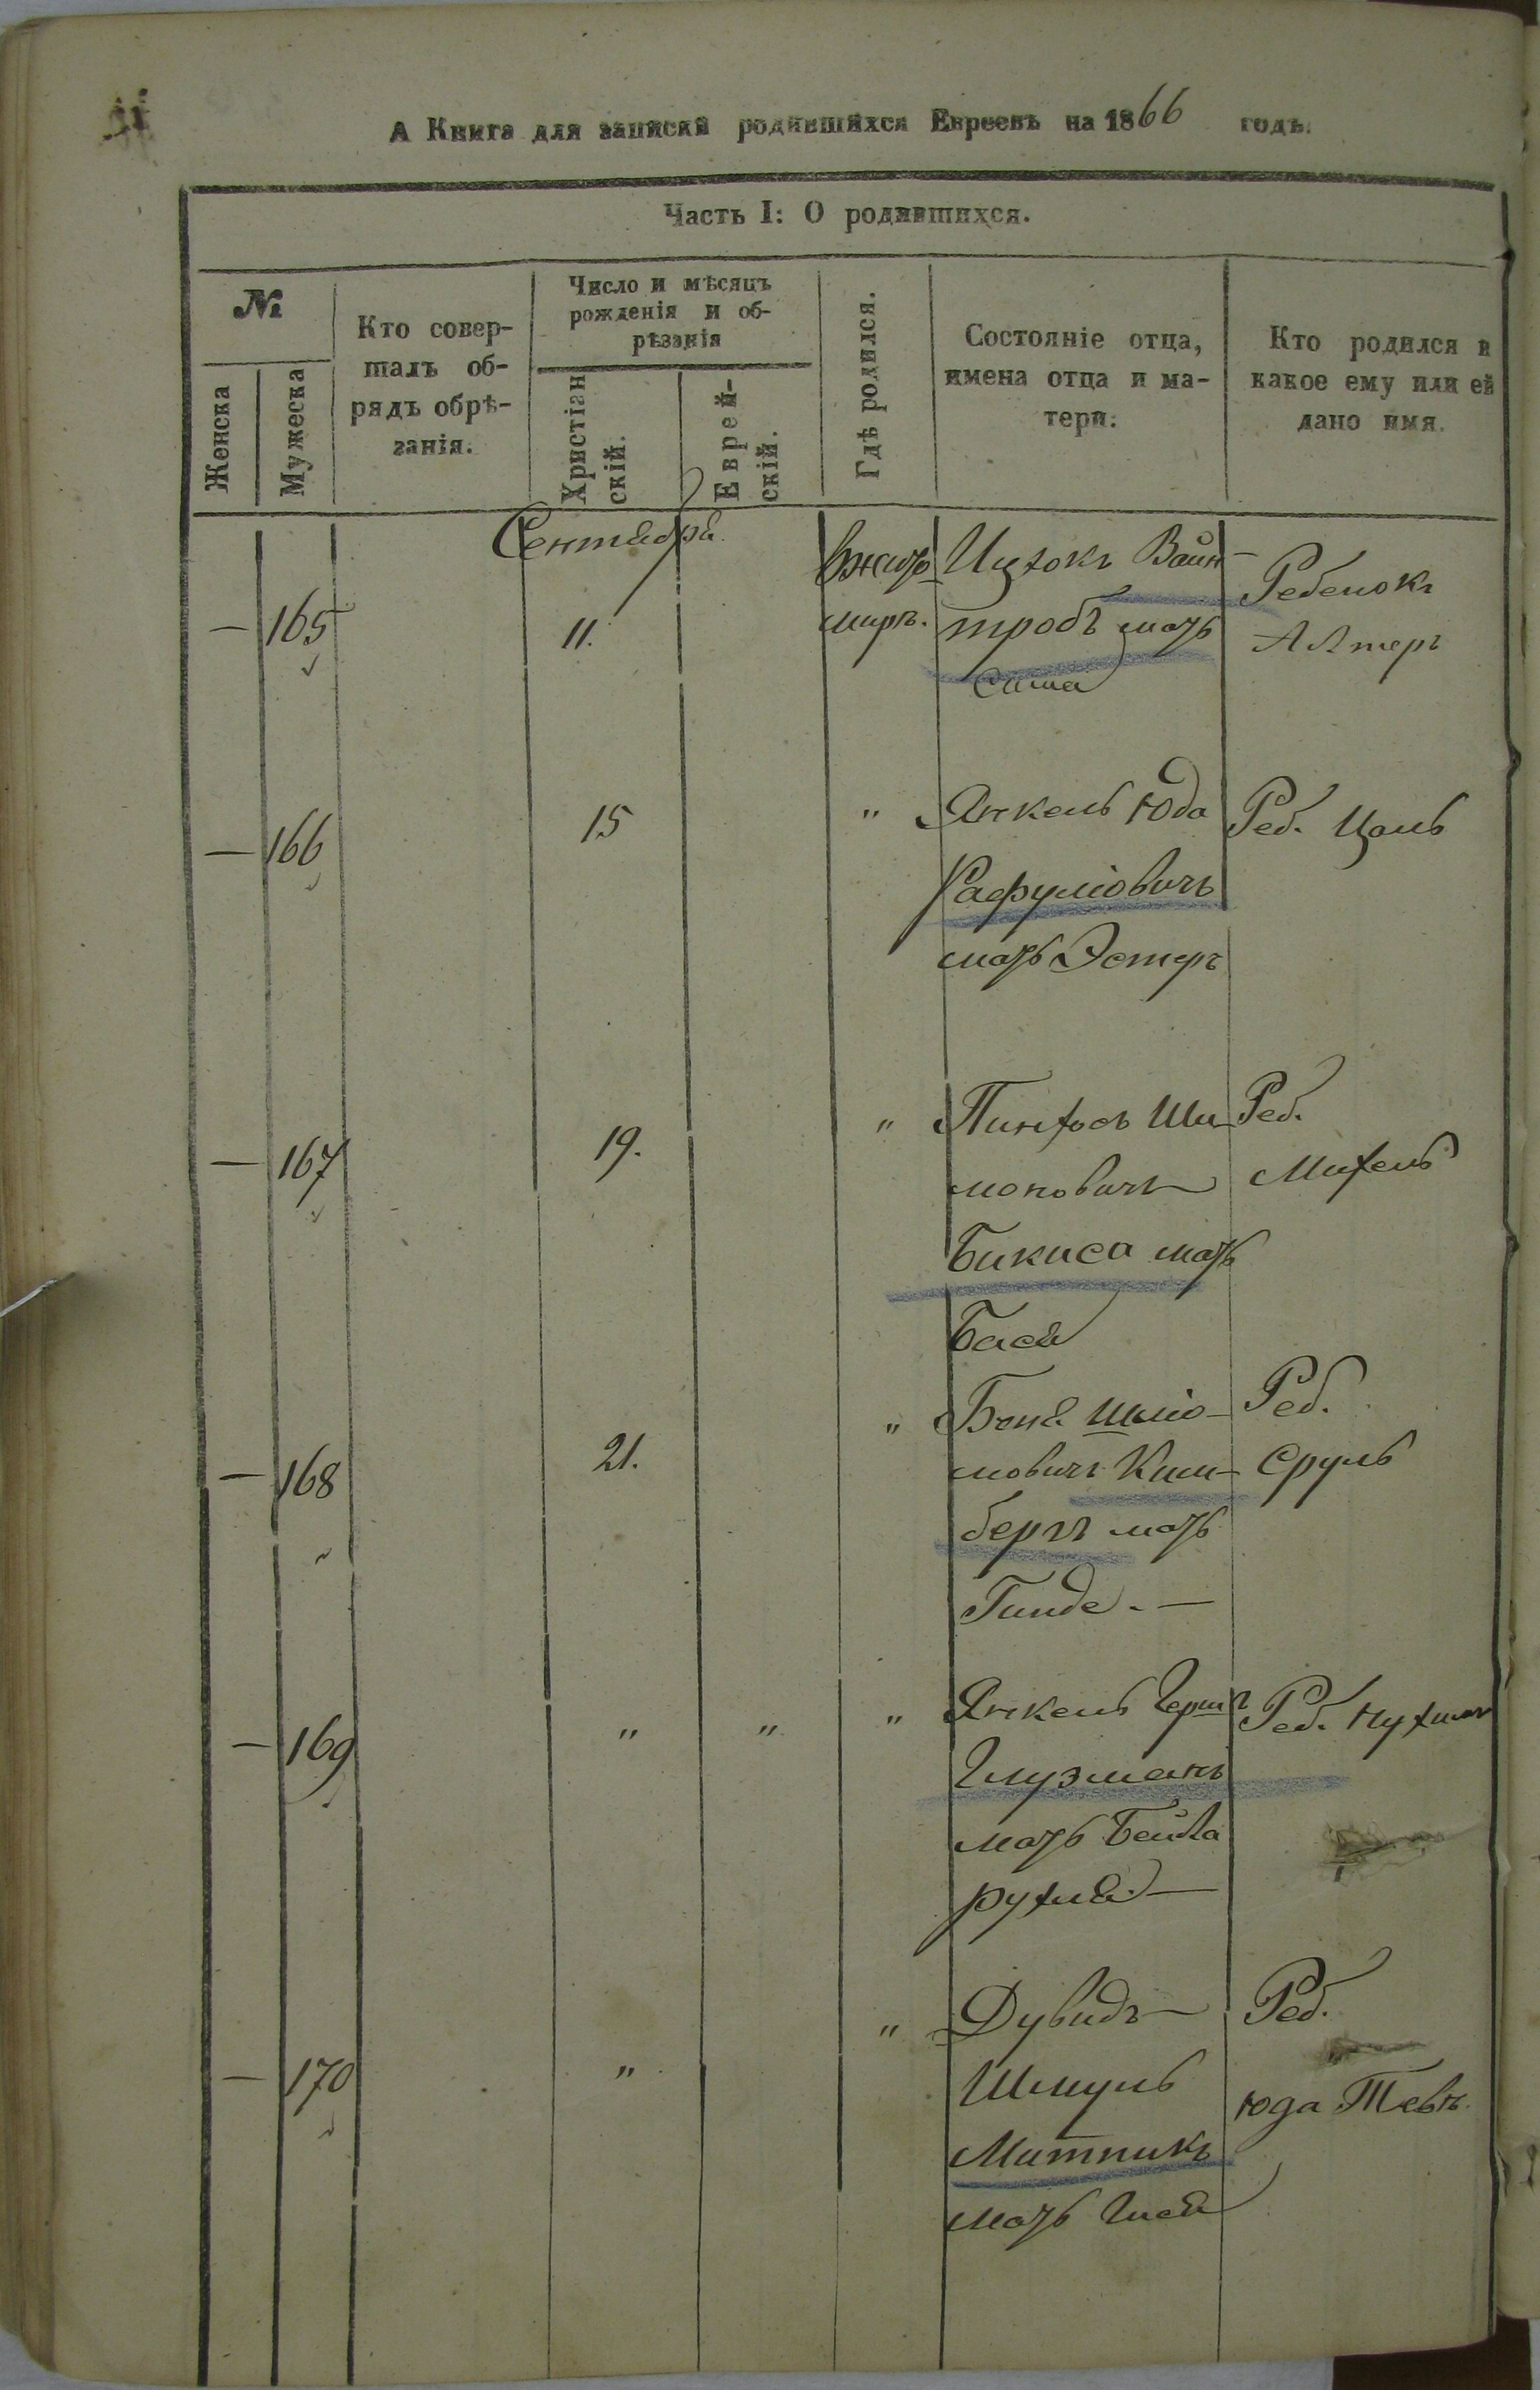 А Книга для записки родившихся Евреевъ на 1866 годъ.
Часть I: О родившихся.
№
Женска
Мужеска
Кто совер-
шалъ об-
рядъ обрѣ-
занія.
Число и мѣсяцъ
рожденія и об-
рѣзанія
Христіан
скій.
Еврей-
скій.
Гдѣ родился.
Состояніе отца,
имена отца и ма-
тери.
Кто родился и
какое ему или ей
дано имя.
Сентября
— 165
11.
Вжито
миръ.
Ицхокъ Вайн-
тробъ мать
Сима
Ребенокъ
Алтеръ
— 166
15
"
Янкель Юда
Рафуловичъ
мать Эстеръ
Реб. Цаль
— 167
19.
"
Пинхосъ Ши-
моновичъ
Бикиса мать
Бася
Реб.
Михель
— 168
21.
"
Беня Шліо-
мовичъ Ким-
бергъ мать
Гинде. —
Реб.
Сруль
— 169
" " "
Янкель Герш
Глузманъ
мать Бейла
рухля —
Реб. Нухим
— 170
" "
Дувидъ —
Шмуль
Митникъ
мать Гися
Реб.
юда Тевъ